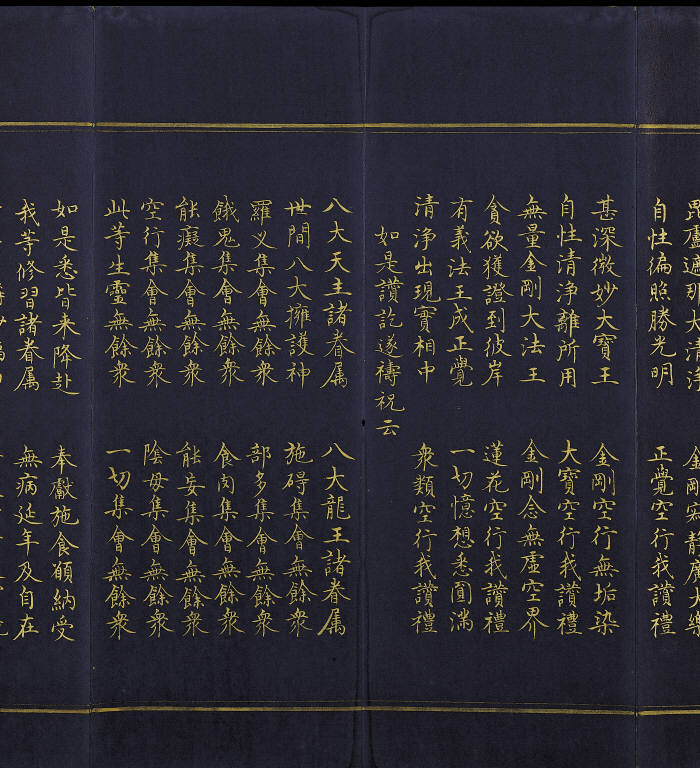 毘盧遮那大清淨 金剛寂静廣大樂
自性徧照勝光明 正覺空行我讚禮
甚深微妙大寶王 金剛空行無垢染
自性清淨離所用 大寶空行我讚禮
無量金剛大法王 金剛念無虛空界
貪欲獲證到彼岸 蓮花空行我讚禮
有義法王成正覺 一切憶想悉圓滿
清淨出現實相中 衆類空行我讚禮
如是讚訖遂禱祝云
八大天主諸眷属 八大龍王諸眷属
世間八大擁護神 施碍集會無餘衆
羅义集會無餘衆 部多集會無餘衆
餓鬼集會無餘衆 食肉集會無餘衆
能癡集會無餘衆 能妄集會無餘衆
空行集會無餘衆 陰母集會無餘衆
此等生靈無餘衆 一切集會無餘衆
如是悉皆来降赴 奉獻施食願納受
我等修習諸眷属 無病延年及自在